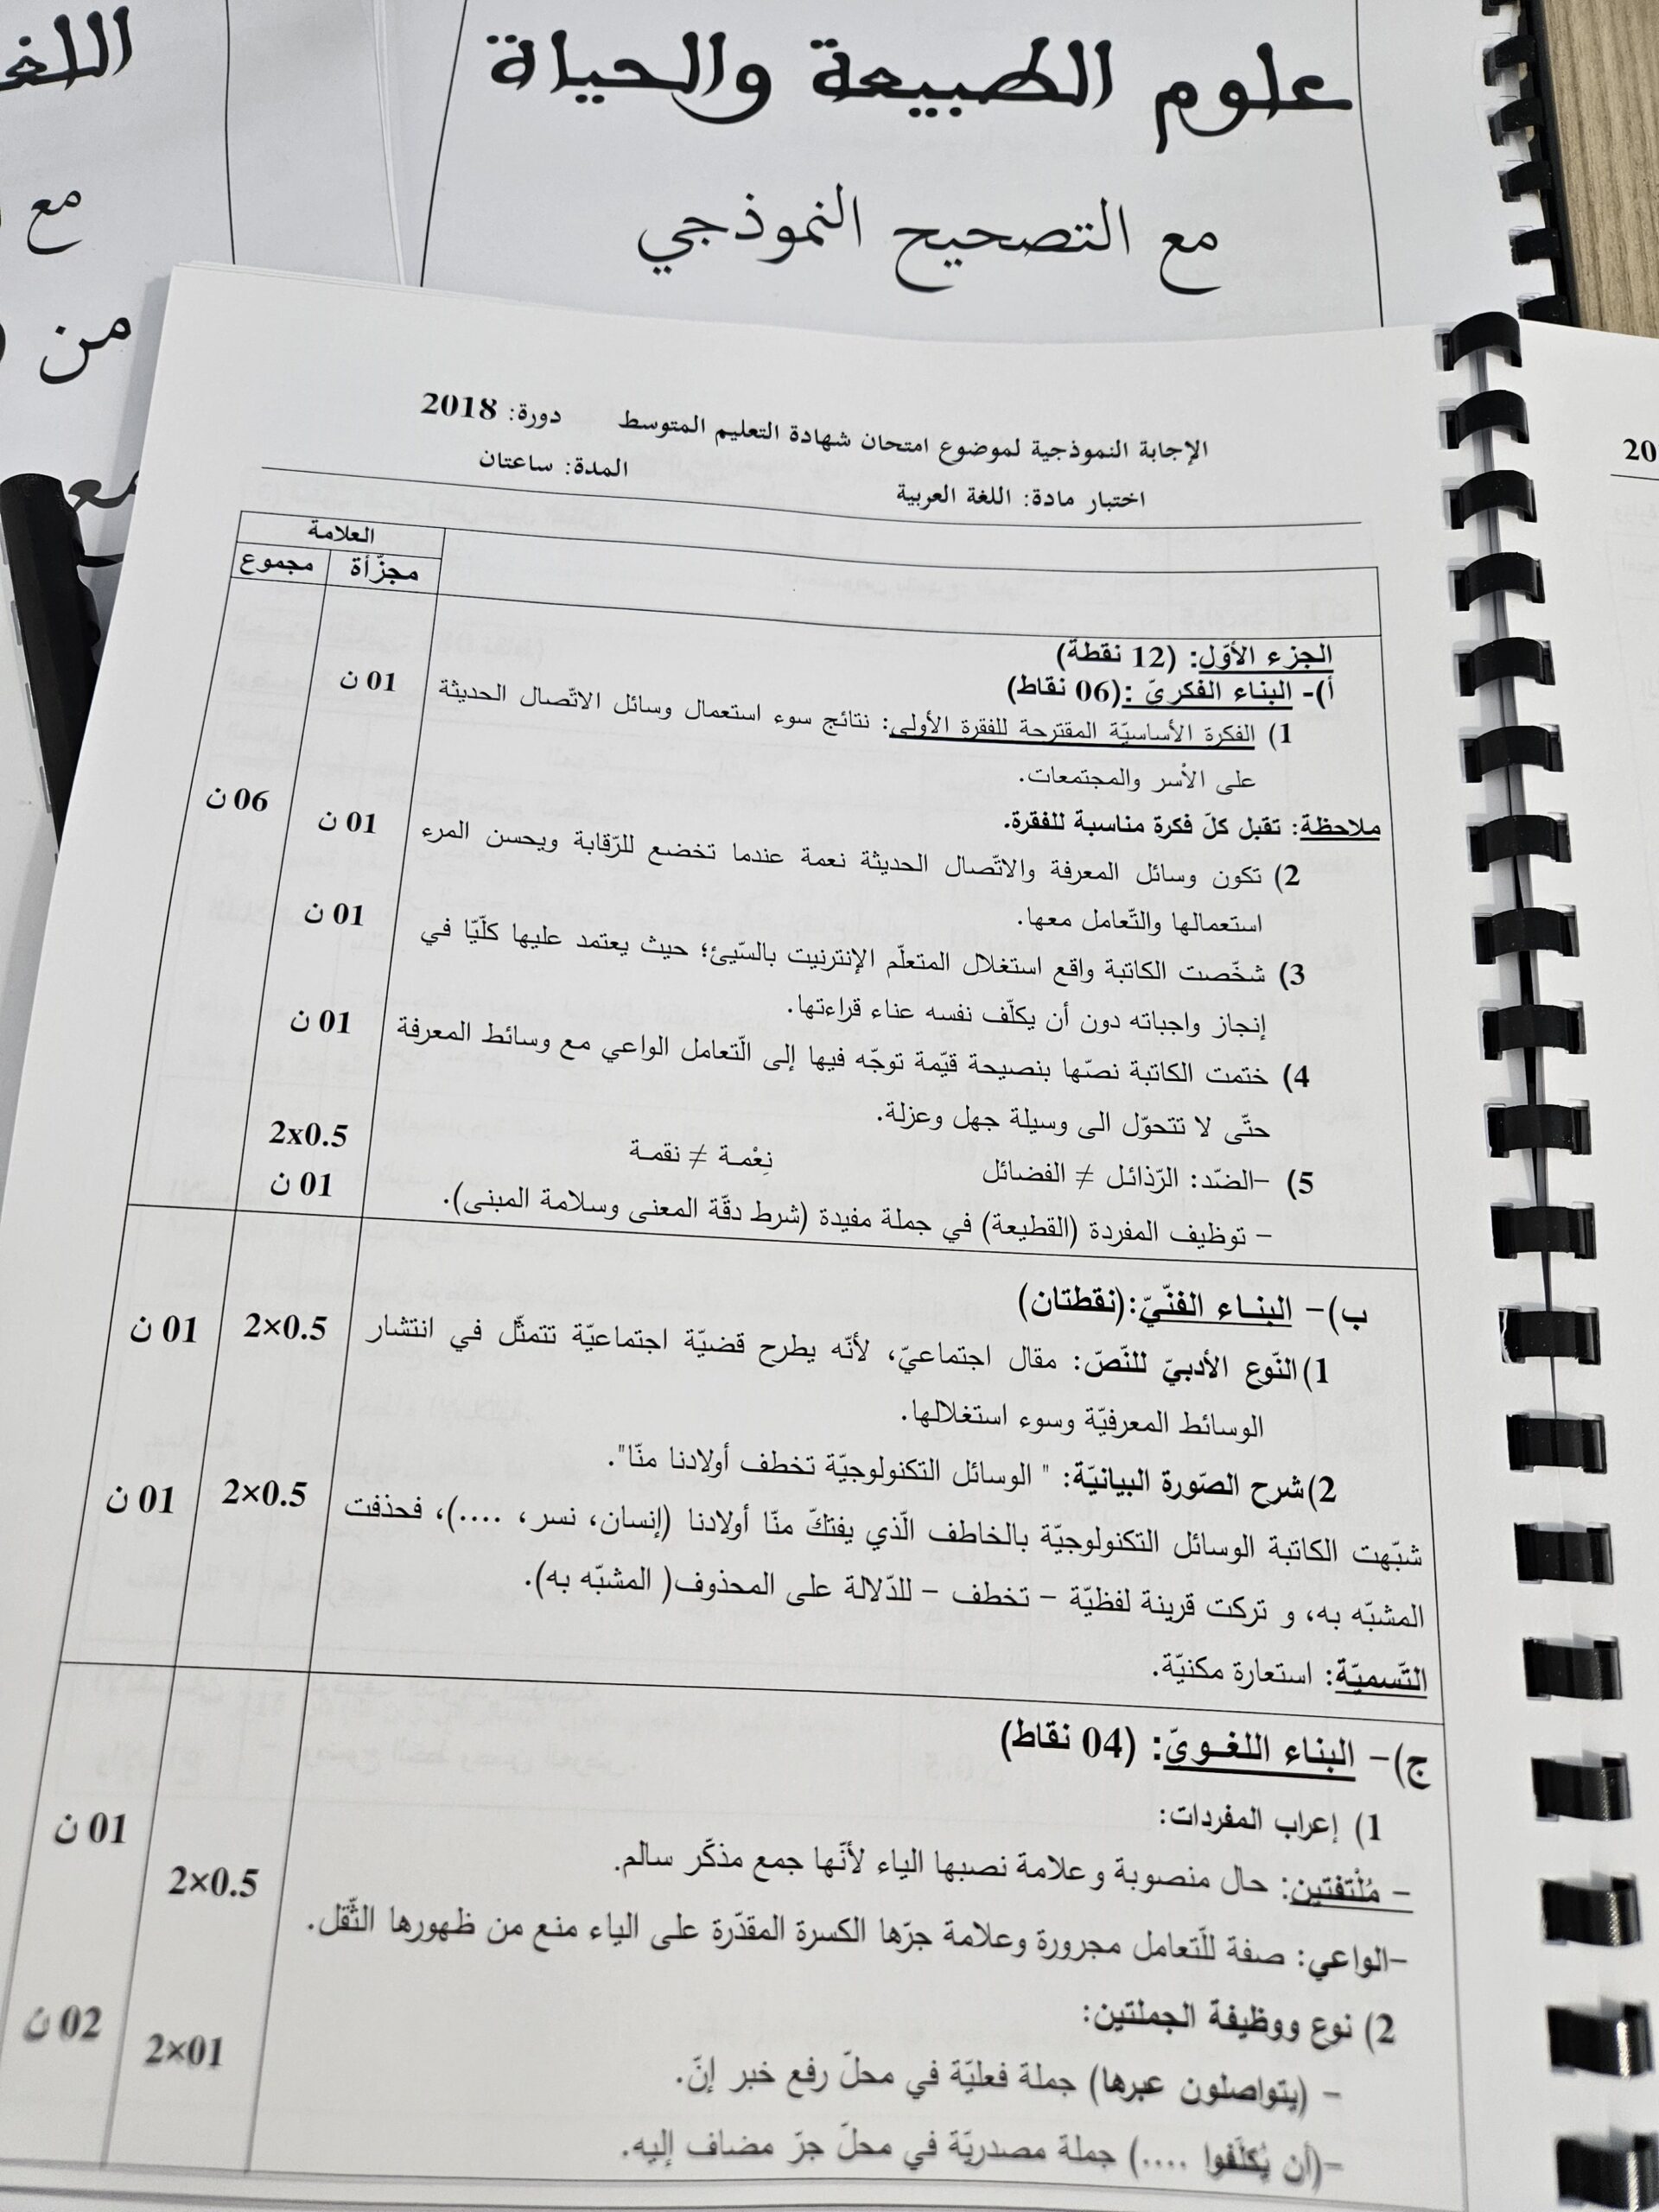 علوم الطبيعة والحياة
مع التصحيح النموذجي
مع
من
الإجابة النموذجية لموضوع امتحان شهادة التعليم المتوسط دورة: 2018
اختبار مادة: اللغة العربية المدة: ساعتان
العلامة
مجزّأة مجموع
الجزء الأوّل: (12 نقطة)
أ)- البناء الفكريّ :(06 نقاط)
1) الفكرة الأساسيّة المقترحة للفقرة الأولى: نتائج سوء استعمال وسائل الاتّصال الحديثة 01 ن
على الأسر والمجتمعات.
ملاحظة: تقبل كلّ فكرة مناسبة للفقرة. 06 ن
2) تكون وسائل المعرفة والاتّصال الحديثة نعمة عندما تخضع للرّقابة ويحسن المرء 01 ن
استعمالها والتّعامل معها.
3) شخّصت الكاتبة واقع استغلال المتعلّم الإنترنيت بالسّيئ؛ حيث يعتمد عليها كلّيّا في 01 ن
إنجاز واجباته دون أن يكلّف نفسه عناء قراءتها.
4) ختمت الكاتبة نصّها بنصيحة قيّمة توجّه فيها إلى الّتعامل الواعي مع وسائط المعرفة 01 ن
حتّى لا تتحوّل الى وسيلة جهل وعزلة.
5) -الضّد: الرّذائل ≠ الفضائل نِعْمة ≠ نقمة 2x0.5
- توظيف المفردة (القطيعة) في جملة مفيدة (شرط دقّة المعنى وسلامة المبنى). 01 ن
ب)- البناء الفنّيّ:(نقطتان)
1)النّوع الأدبيّ للنّصّ: مقال اجتماعيّ، لأنّه يطرح قضيّة اجتماعيّة تتمثّل في انتشار 2×0.5 01 ن
الوسائط المعرفيّة وسوء استغلالها.
2)شرح الصّورة البيانيّة: " الوسائل التكنولوجيّة تخطف أولادنا منّا".
شبّهت الكاتبة الوسائل التكنولوجيّة بالخاطف الّذي يفتكّ منّا أولادنا (إنسان، نسر، ....)، فحذفت 2×0.5 01 ن
المشبّه به، و تركت قرينة لفظيّة - تخطف - للدّلالة على المحذوف( المشبّه به).
التّسميّة: استعارة مكنيّة.
ج)- البناء اللغويّ: (04 نقاط)
1) إعراب المفردات: 01 ن
- مُلْتفتين: حال منصوبة وعلامة نصبها الياء لأنّها جمع مذكّر سالم. 2×0.5
-الواعي: صفة للّتعامل مجرورة وعلامة جرّها الكسرة المقدّرة على الياء منع من ظهورها الثّقل.
2) نوع ووظيفة الجملتين: 02 ن
- (يتواصلون عبرها) جملة فعليّة في محلّ رفع خبر إنّ. 2×01
-(أن يُكلّفوا ....) جملة مصدريّة في محلّ جرّ مضاف إليه.
20